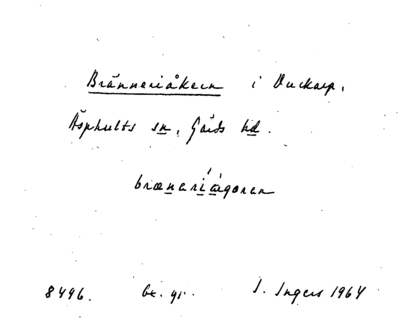 Bränneriåkern i Vuckarp,
Äsphults sn, Gärds hd.
brænəriågərən
8496. be. gi. I. Ingers 1964